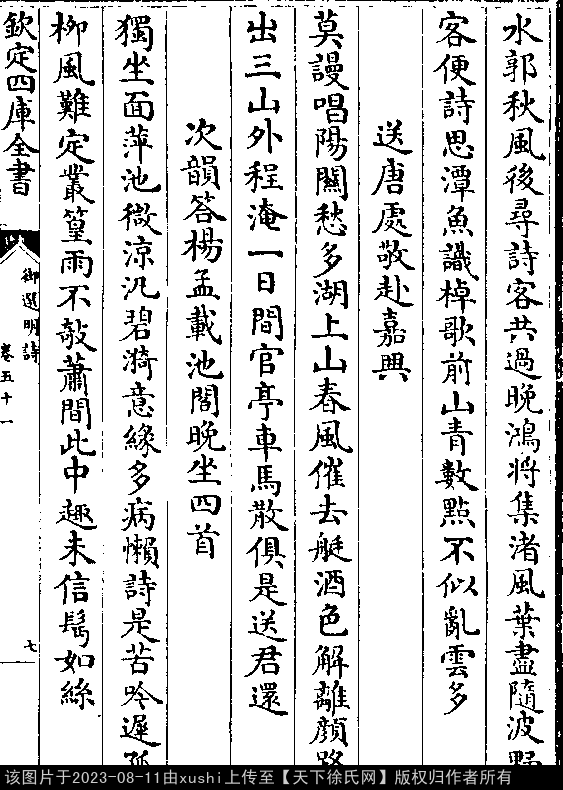 水郭秋風後尋詩客共過晚鴻將集渚風葉盡隨波野
客便詩思潭魚識棹歌前山青數點不似亂雲多
送唐處敬赴嘉興
莫謾唱陽關愁多湖上山春風催去艇酒色解離顔路
出三山外程淹一日間官亭車馬散俱是送君還
次韻答楊孟載池閣晚坐四首
獨坐面萍池微涼汎碧漪意緣多病懶詩是苦吟遲孤
柳風難定叢篁雨不敧蕭間此中趣未信髩如絲
欽定四庫全書
御選明詩
卷五十一
七
该图片于2023-08-11由xushi上传至【天下徐氏网】版权归作者所有